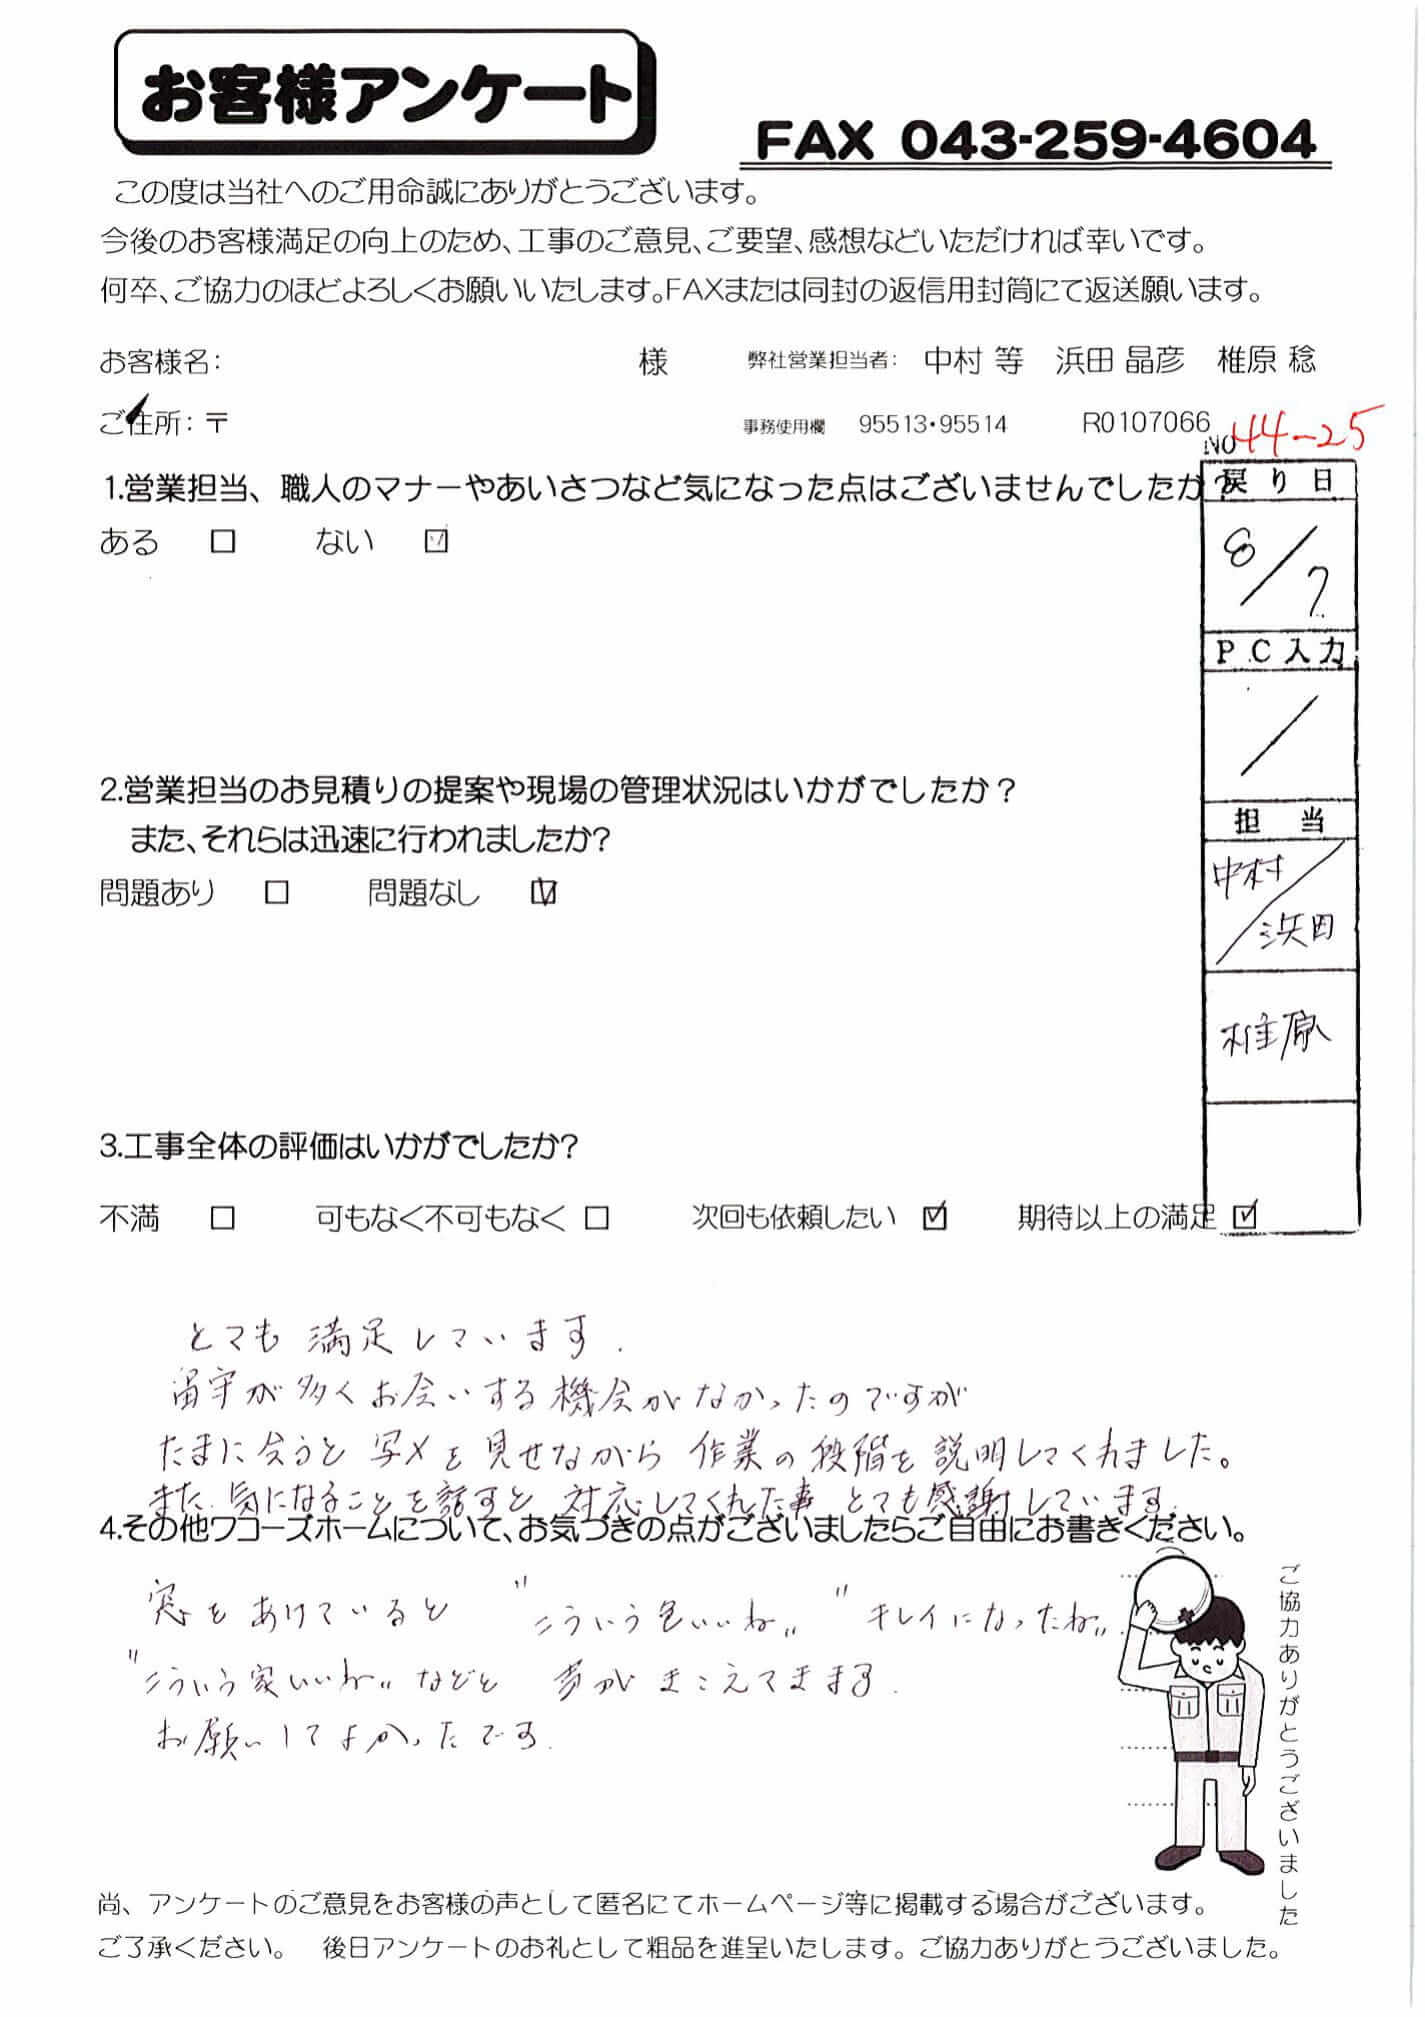 お客様アンケート
FAX 043-259-4604
この度は当社へのご用命誠にありがとうございます。
今後のお客様満足の向上のため、工事のご意見、ご要望、感想などいただければ幸いです。
何卒、ご協力のほどよろしくお願いいたします。FAXまたは同封の返信用封筒にて返送願います。
お客様名: 様 弊社営業担当者: 中村 等 浜田 晶彦 椎原 稔
ご住所: 〒 事務使用欄 95513・95514 R0107066
NO 44-25
1.営業担当、職人のマナーやあいさつなど気になった点はございませんでしたか?
戻り日
ある □ ない ☑
8/7
PC入力
/
2.営業担当のお見積りの提案や現場の管理状況はいかがでしたか?
また、それらは迅速に行われましたか?
担当
問題あり □ 問題なし ☑
中村/浜田
椎原
3.工事全体の評価はいかがでしたか?
不満 □ 可もなく不可もなく □ 次回も依頼したい ☑ 期待以上の満足 ☑
とても満足しています.
留守が多くお会いする機会がなかったのですが
たまに会うと写メを見せながら作業の段階を説明してくれました。
また、気になることを話すと対応してくれた事、とても感謝しています.
4.その他ワコーズホームについて、お気づきの点がございましたらご自由にお書きください。
窓をあけていると "こういう色いいね" "キレイになったね"
"こういう家いいね"などと 声がきこえてきます.
お願いしてよかったです.
ご協力ありがとうございました
尚、アンケートのご意見をお客様の声として匿名にてホームページ等に掲載する場合がございます。
ご了承ください。 後日アンケートのお礼として粗品を進呈いたします。ご協力ありがとうございました。